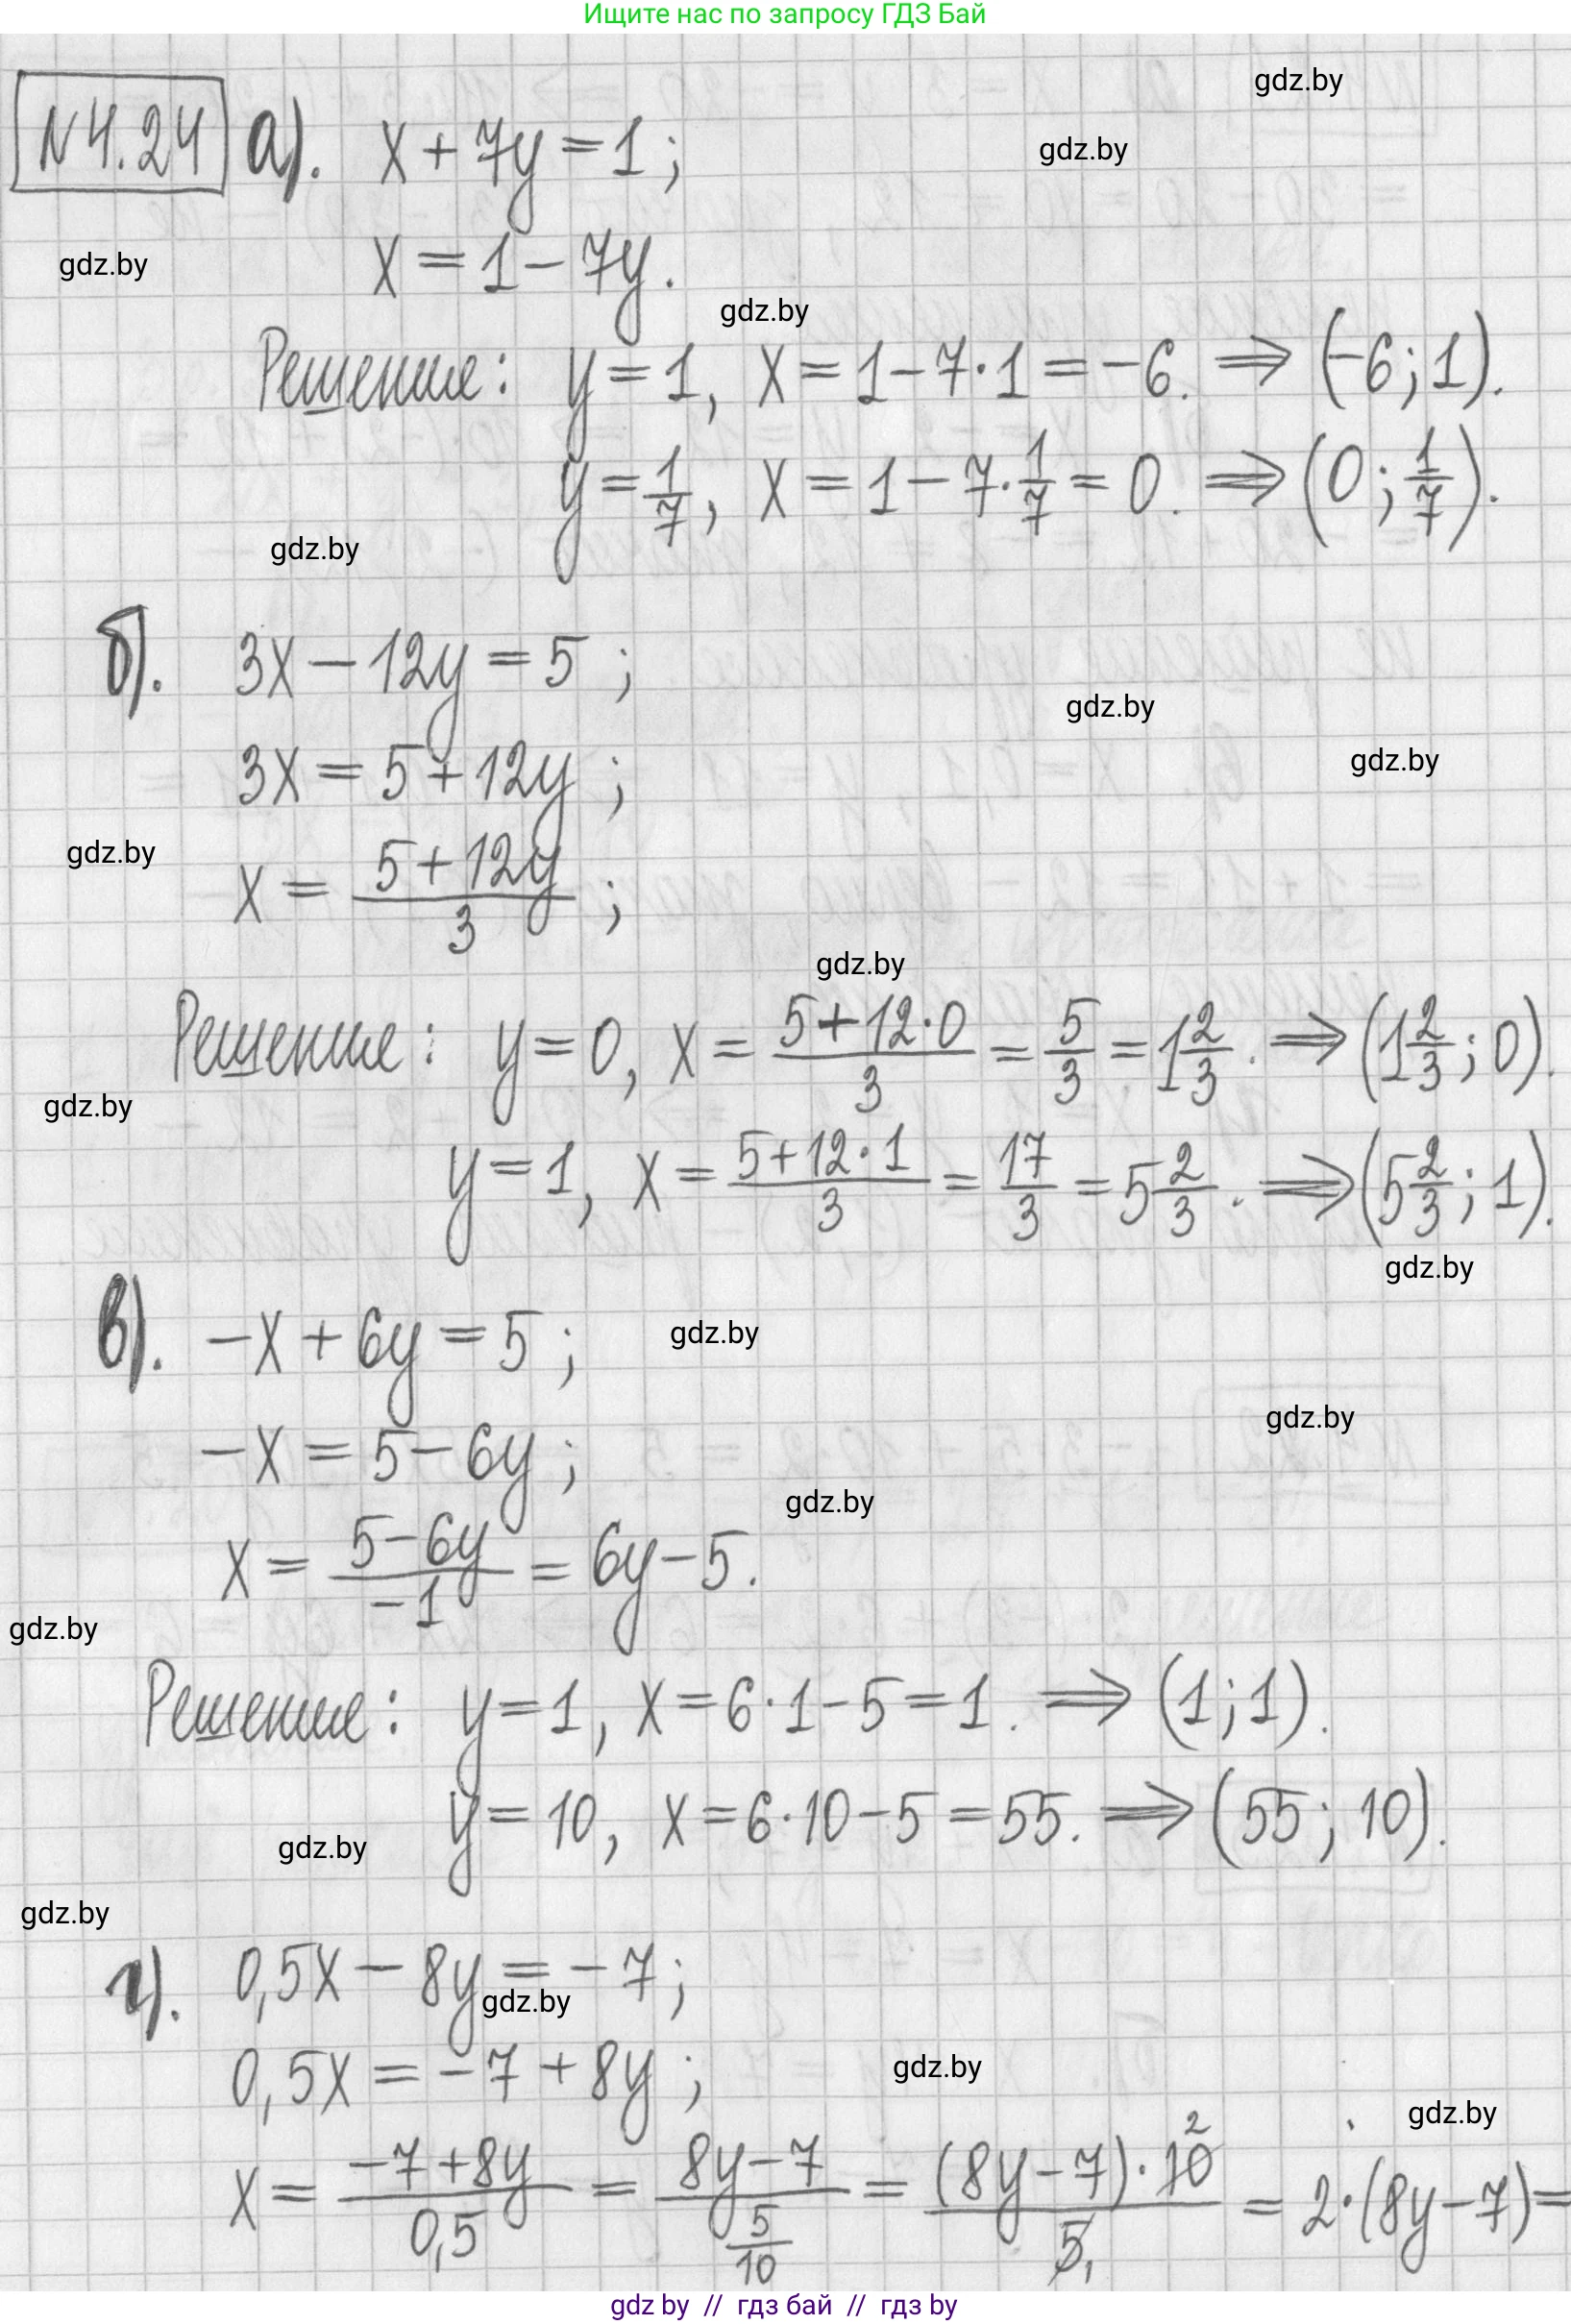 Ищите нас по запросу ГДЗ Бай
gdz.by
N 4.24 а). x + 7y = 1;
gdz.by
x = 1 - 7y.
gdz.by
gdz.by
Решение: y = 1, x = 1 - 7·1 = -6. ⇒ (-6; 1).
y = 1/7, x = 1 - 7·1/7 = 0. ⇒ (0; 1/7).
gdz.by
б). 3x - 12y = 5;
gdz.by
3x = 5 + 12y;
gdz.by
x = (5 + 12y)/3;
gdz.by
gdz.by
Решение: y = 0, x = (5 + 12·0)/3 = 5/3 = 1 2/3. ⇒ (1 2/3; 0).
gdz.by
y = 1, x = (5 + 12·1)/3 = 17/3 = 5 2/3. ⇒ (5 2/3; 1).
gdz.by
в). -x + 6y = 5;
gdz.by
gdz.by
-x = 5 - 6y;
gdz.by
x = (5 - 6y)/-1 = 6y - 5.
gdz.by
Решение: y = 1, x = 6·1 - 5 = 1. ⇒ (1; 1).
y = 10, x = 6·10 - 5 = 55. ⇒ (55; 10).
gdz.by
gdz.by
г). 0,5x - 8y = -7;
gdz.by
0,5x = -7 + 8y;
gdz.by
gdz.by
x = (-7 + 8y)/0,5 = (8y - 7)/(5/10) = ((8y - 7)·10 2)/5 1 = 2·(8y - 7) =
gdz by // гдз бай // гдз by